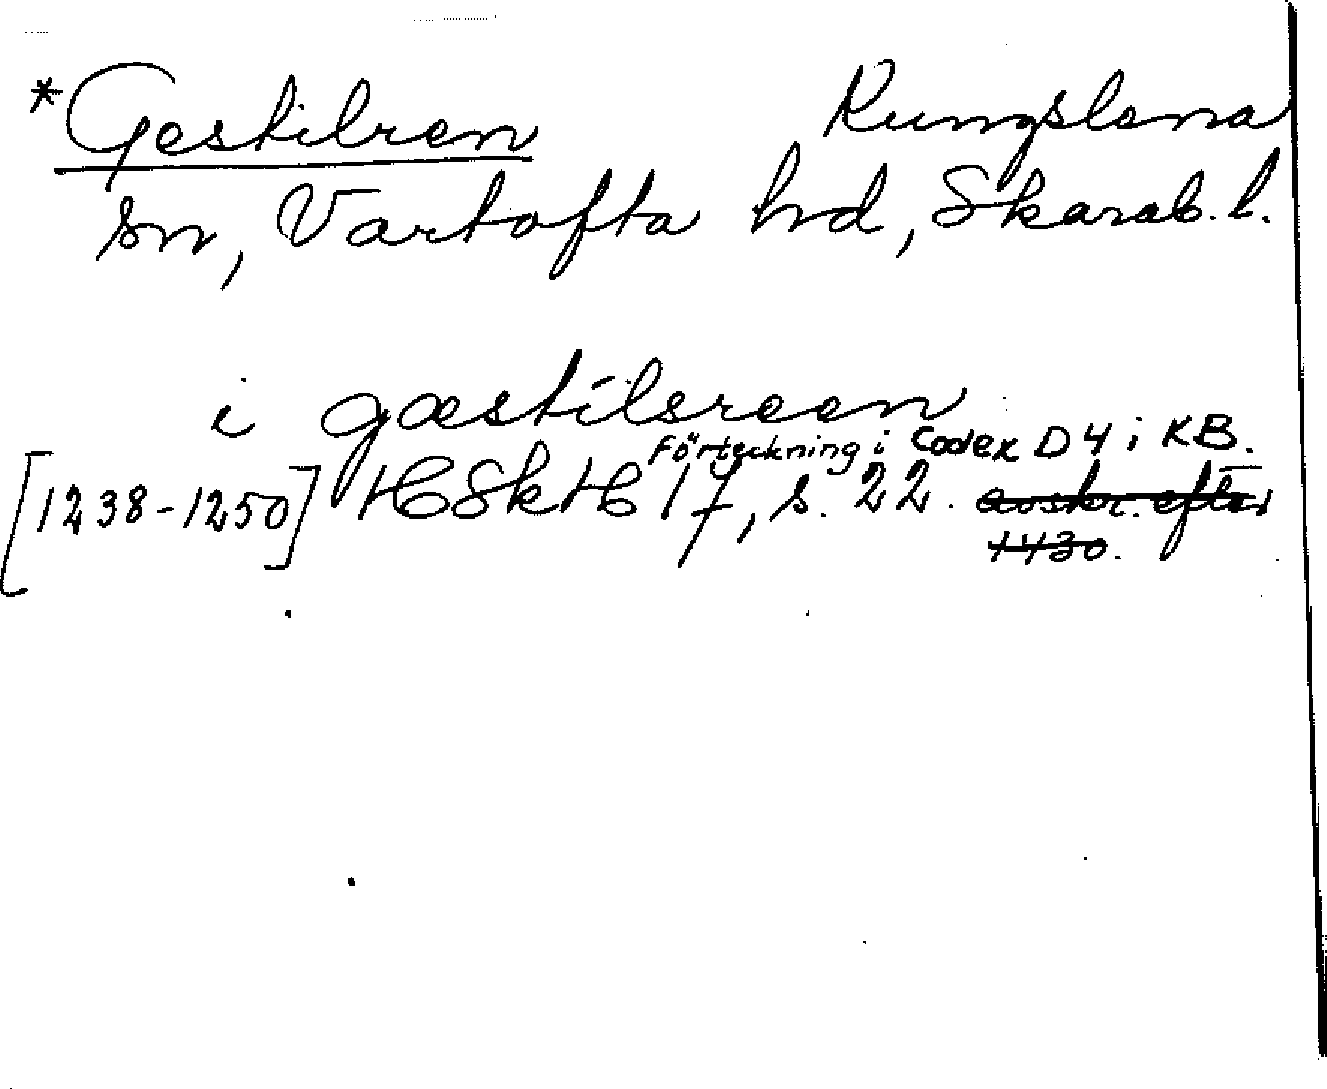 *Gestilren Kungslena
sn, Vartofta hd, Skarab. l.
i gæstilsreen
Förteckning i Codex D 4 i KB.
[1238-1250] HSkH 17, s. 22. avskr. efter
1430.